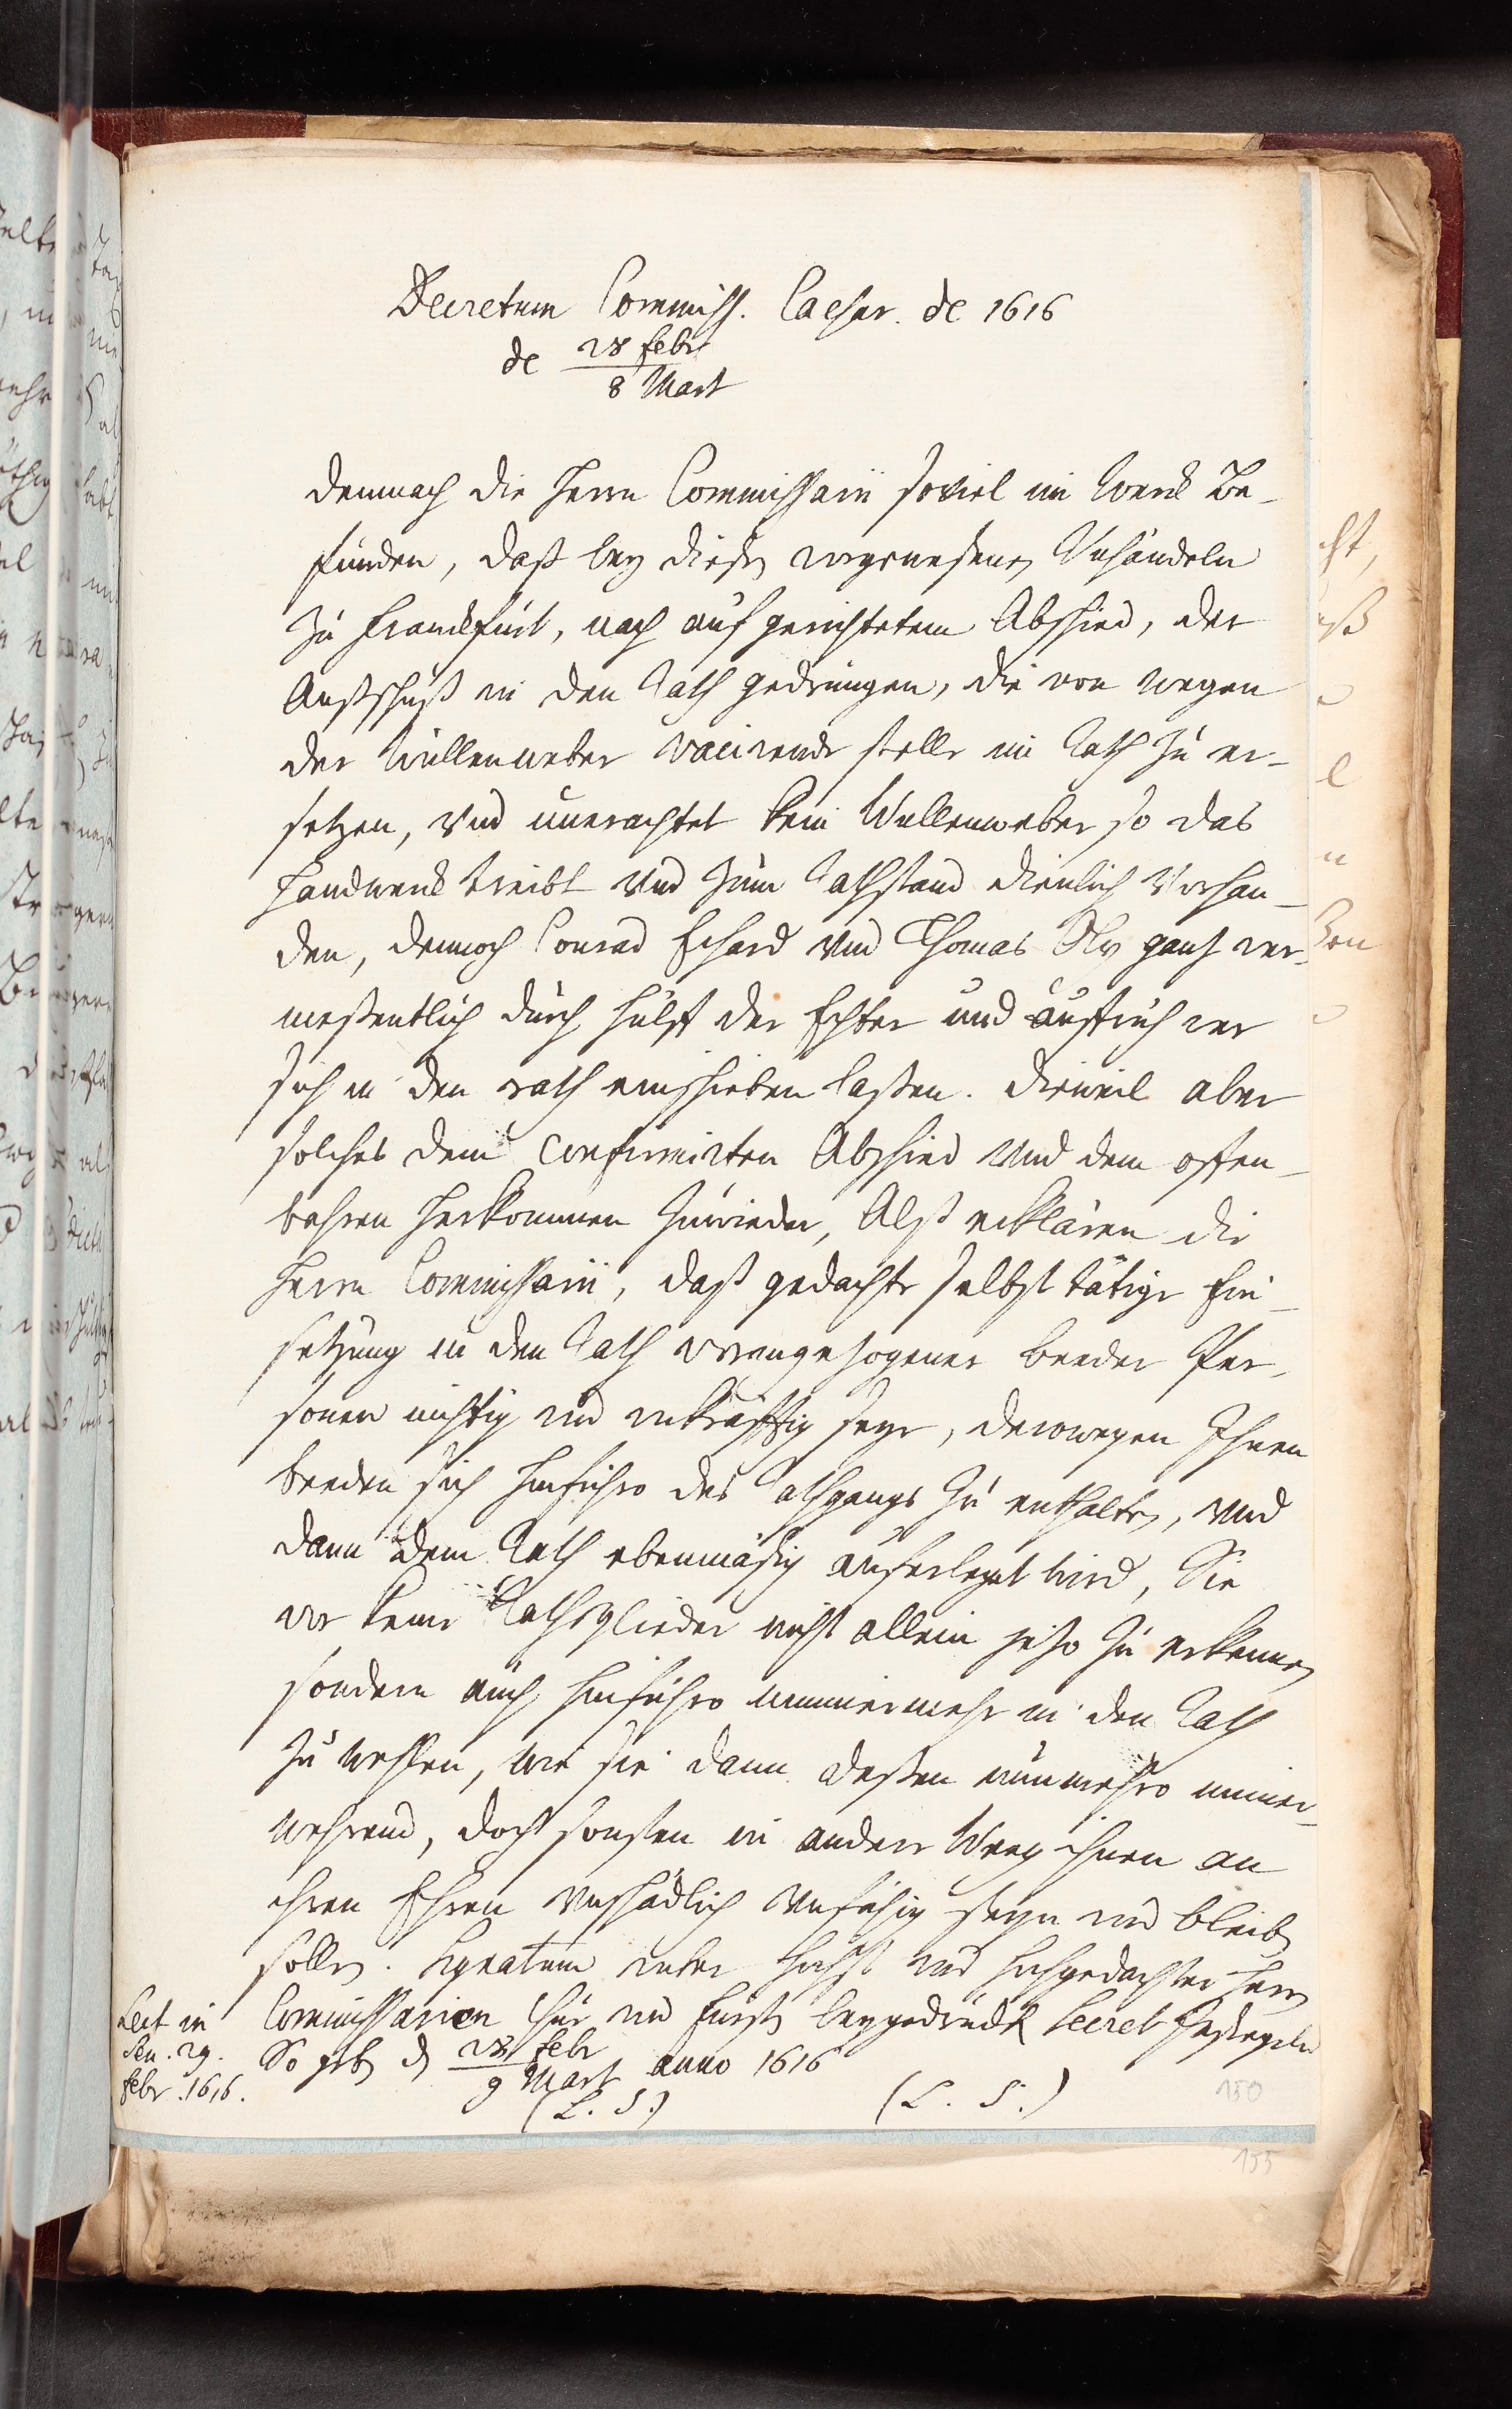 Decretum Commiss. Caesar. de 1616
de 28 febr
8 Mart
Demnach die Herrn Commissarii soviel im Werck Be-
funden, daß bey diesen vorgewesenen Unhändeln
zu Franckfurt, nach aufgerichtetem Abschied, der
Außschuß in den Rath gedrungen, die von wegen
der Wüllenweber vacirende stelle im Rath zu er-
setzen, vnd unerachtet kein Wullenweber so das
Handwerck treibt vnd zum Rathstand dienlich Vorhan-
den, dennoch Conrad Echard vnd Thomas Oly gantz ver-
meßentlich durch hülff der und aufrührer
sich in den rath einschieben laßen. Dieweil aber
solches dem confirmirten Abschied vnd dem offen-
bahren Herkommen zuwieder, Alß erklären die
Herrn Commissarii, daß gedachte selbst tätige Ein-
setzung in den Rath vorangezogener beeder Per-
sonen nichtig vnd vnkräfftig seye, derowegen Ihnen
beeden sich hinführo des Rathgangs zu enthalten, vnd
dann dem Rath ebenmäßig auferleget wird, Sie
vor keine Rathsglieder nicht allein jetzo zu erkennen
sondern auch hinführo nimmermehr in den Rath
zu wehlen, wie sie dann deßen nunmehro immer-
wehrend, doch sonsten in andere Weeg ihnen an
ihren Ehren vnschädlich vnfähig seyn vnd bleiben
sollen. Signatum vnter höchst vnd hochgedachter Herrn
Commissarien Chur vnd fürstl beygedruckt Secret
So geben d 28 febr
9 Mart anno 1616
(L. S.) (L. S.)
Lect in
Sen. 29.
febr. 1616.
150
155